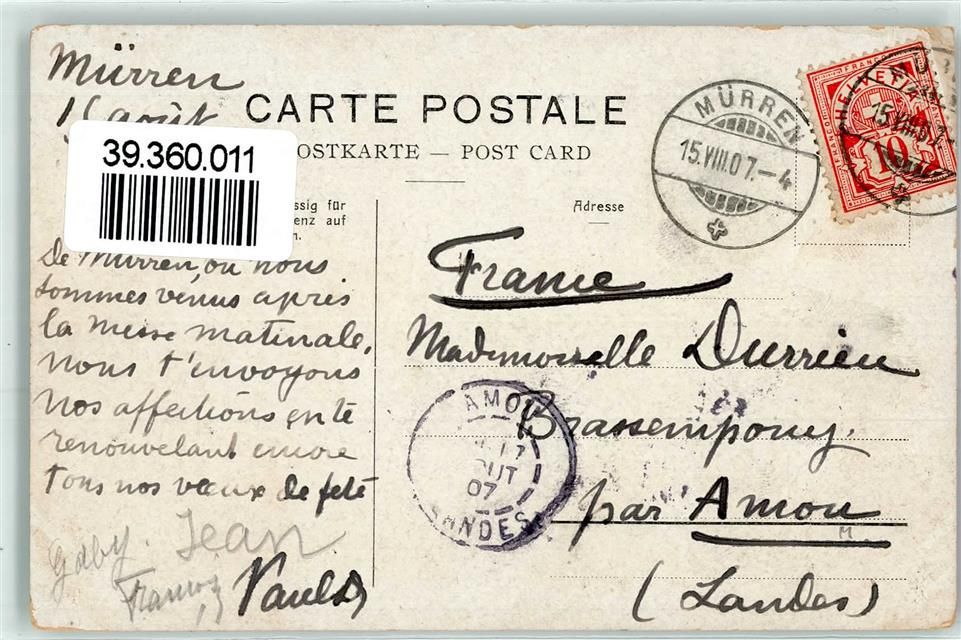 Mürren
15 août
CARTE POSTALE
POSTKARTE — POST CARD
39.360.011
ssig für
enz auf
n.
Adresse
MÜRREN
15.VIII.07.–4
FRANCO
HELVETIA
10
15.VIII.07
De Mürren, où nous
sommes venus après
la Messe matinale,
nous t'envoyons
nos affections en te
renouvelant encore
tous nos vœux de fête
Gaby. Jean
France
Mademoiselle Durrieu
Brassempouy.
par Amou
(Landes)
AMOU
AOUT
07
LANDES